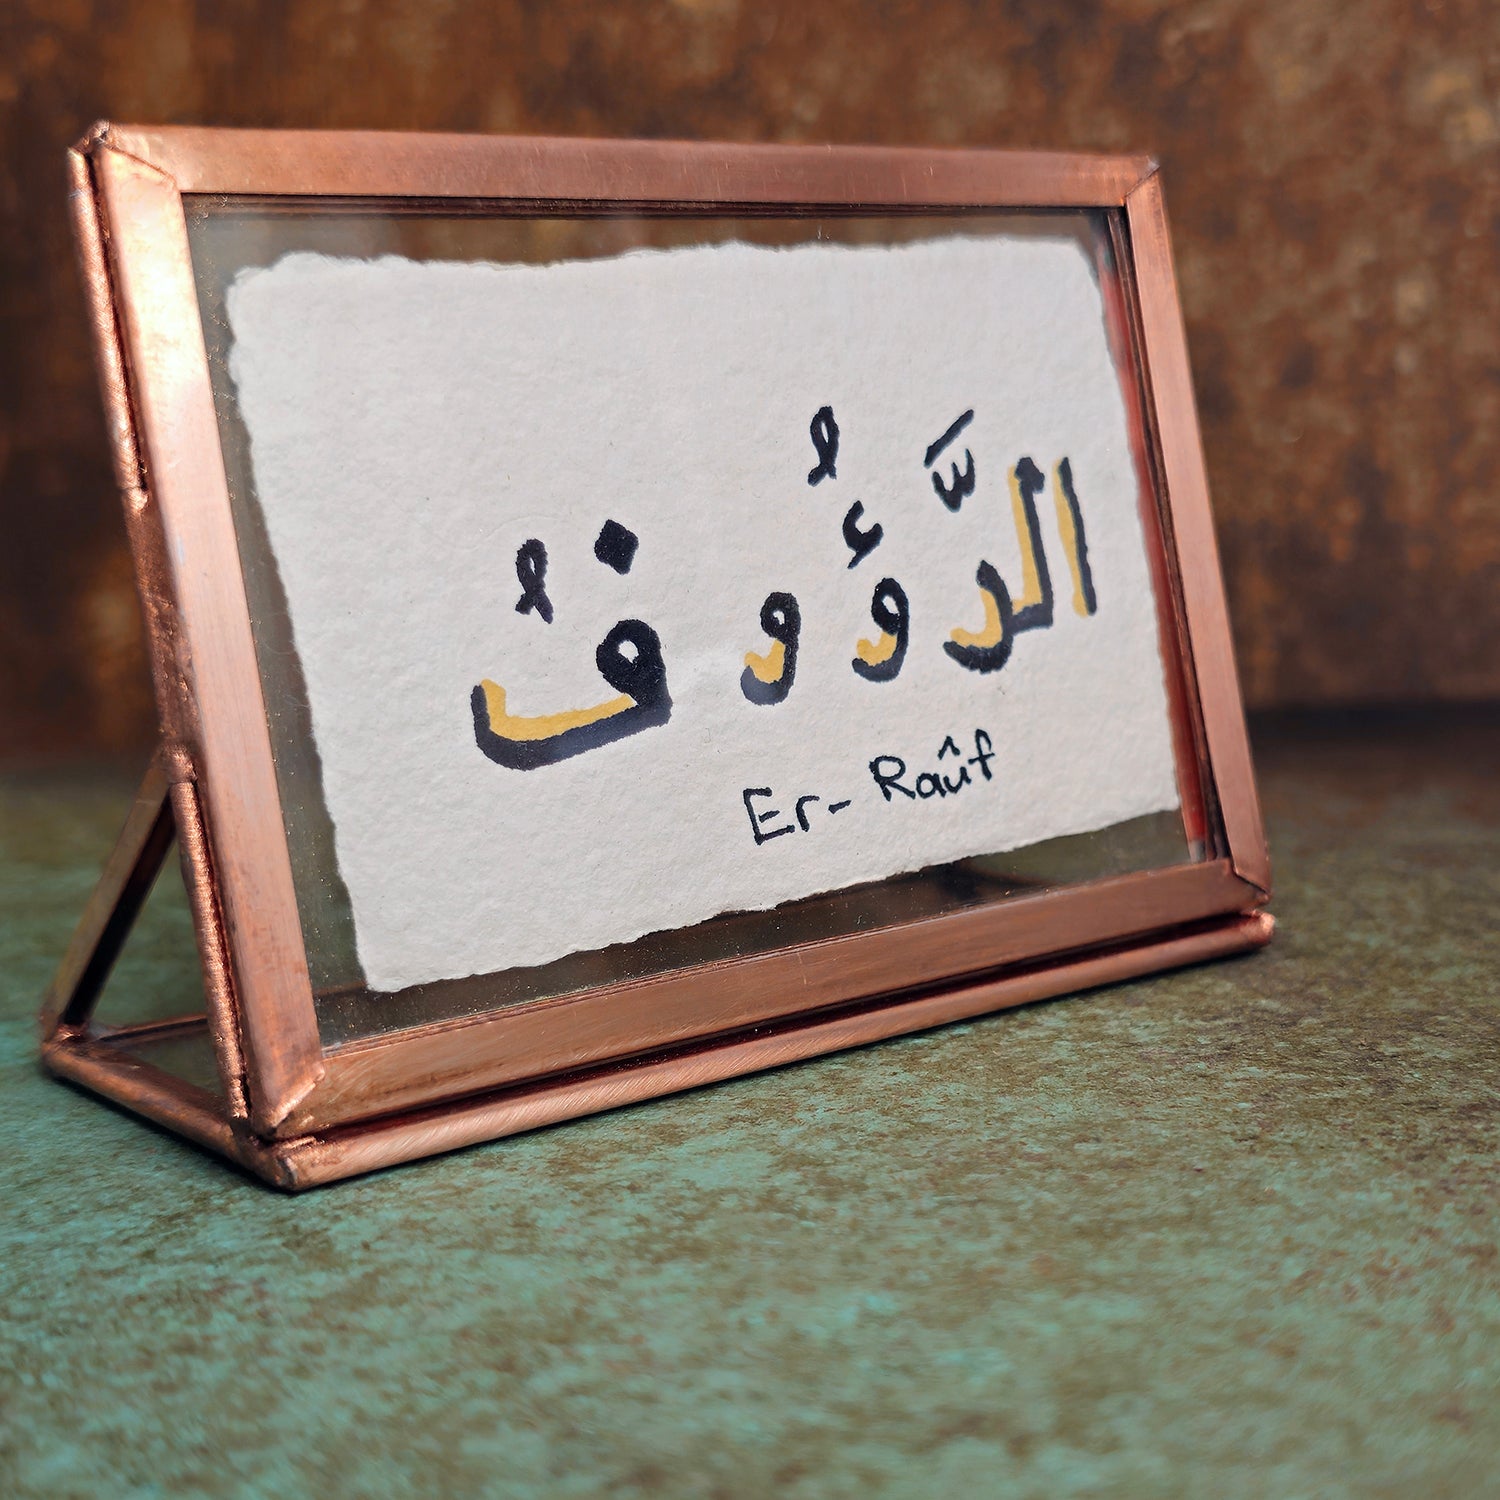 الرَّؤُوفُ
Er-Raûf